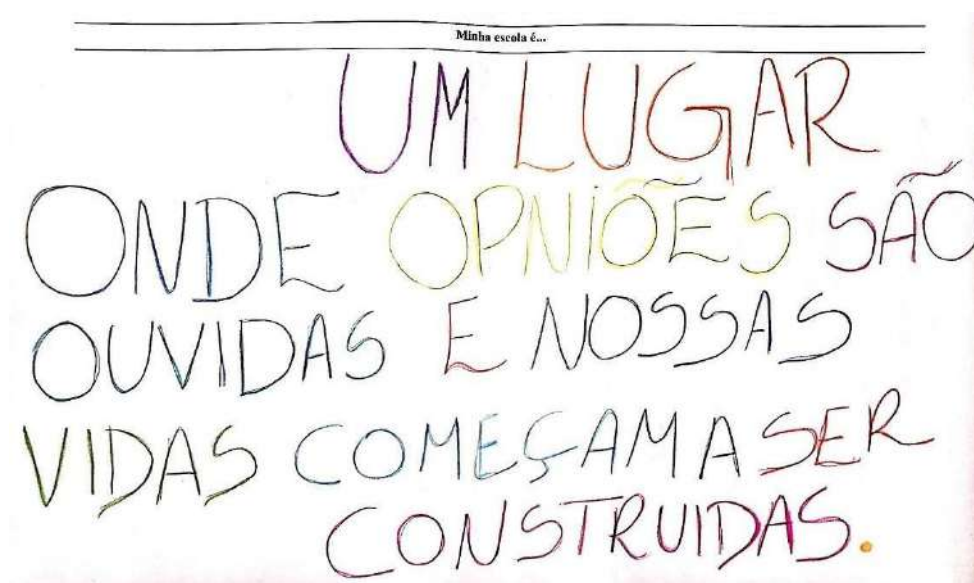 Minha escola é...
UM LUGAR
ONDE OPNIÕES SÃO
OUVIDAS E NOSSAS
VIDAS COMEÇAM A SER
CONSTRUIDAS.